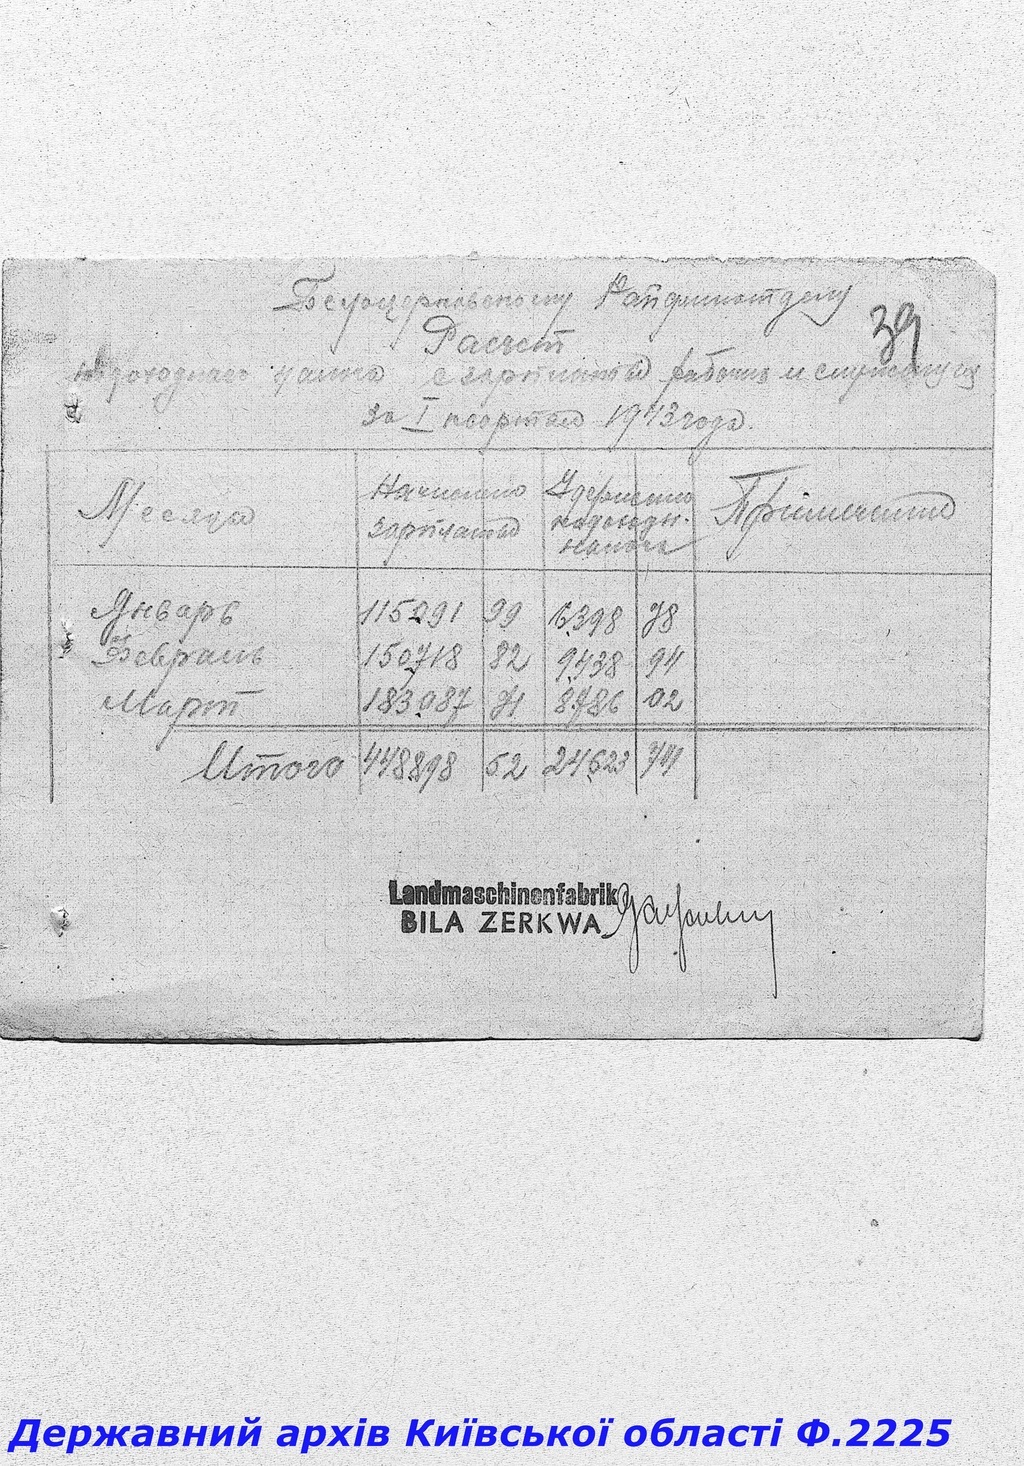 Белоцерковскому Райфинотделу
39
Расчет
подоходного налога с зарплаты рабочих и служащих
за I квартал 1943 года.
Месяца Начислено зарплаты Удержано подоходн. налога Примечание
Январь 115091 99 6398 78
Февраль 150718 82 9438 94
Март 183087 71 8786 02
Итого 448898 52 24623 74
Landmaschinenfabrik
BILA ZERKWA
Державний архів Київської області Ф.2225